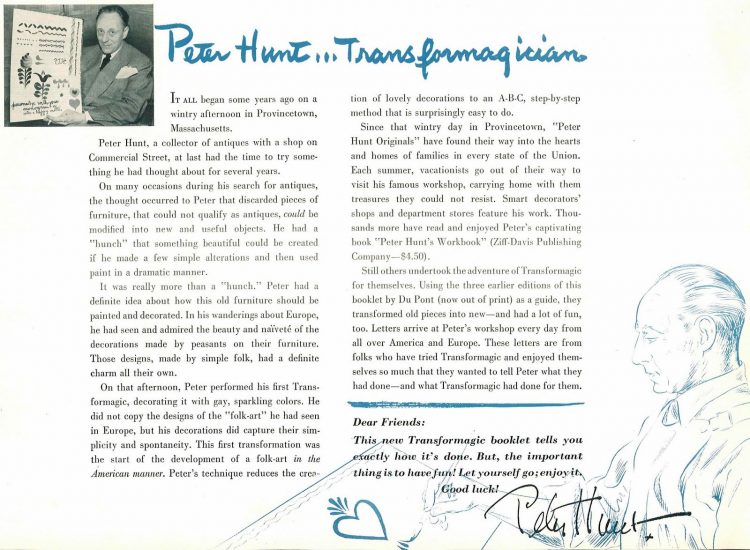 Peter Hunt... Transformagician
IT ALL began some years ago on a
wintry afternoon in Provincetown,
Massachusetts.
Peter Hunt, a collector of antiques with a shop on
Commercial Street, at last had the time to try some-
thing he had thought about for several years.
On many occasions during his search for antiques,
the thought occurred to Peter that discarded pieces of
furniture, that could not qualify as antiques, could be
modified into new and useful objects. He had a
"hunch" that something beautiful could be created
if he made a few simple alterations and then used
paint in a dramatic manner.
It was really more than a "hunch." Peter had a
definite idea about how this old furniture should be
painted and decorated. In his wanderings about Europe,
he had seen and admired the beauty and naïveté of the
decorations made by peasants on their furniture.
Those designs, made by simple folk, had a definite
charm all their own.
On that afternoon, Peter performed his first Trans-
formagic, decorating it with gay, sparkling colors. He
did not copy the designs of the "folk-art" he had seen
in Europe, but his decorations did capture their sim-
plicity and spontaneity. This first transformation was
the start of the development of a folk-art in the
American manner. Peter's technique reduces the crea-
tion of lovely decorations to an A-B-C, step-by-step
method that is surprisingly easy to do.
Since that wintry day in Provincetown, "Peter
Hunt Originals" have found their way into the hearts
and homes of families in every state of the Union.
Each summer, vacationists go out of their way to
visit his famous workshop, carrying home with them
treasures they could not resist. Smart decorators'
shops and department stores feature his work. Thou-
sands more have read and enjoyed Peter's captivating
book "Peter Hunt's Workbook" (Ziff-Davis Publishing
Company—$4.50).
Still others undertook the adventure of Transformagic
for themselves. Using the three earlier editions of this
booklet by Du Pont (now out of print) as a guide, they
transformed old pieces into new—and had a lot of fun,
too. Letters arrive at Peter's workshop every day from
all over America and Europe. These letters are from
folks who have tried Transformagic and enjoyed them-
selves so much that they wanted to tell Peter what they
had done—and what Transformagic had done for them.
Dear Friends:
This new Transformagic booklet tells you
exactly how it's done. But, the important
thing is to have fun! Let yourself go; enjoy it.
Good luck!
Peter Hunt